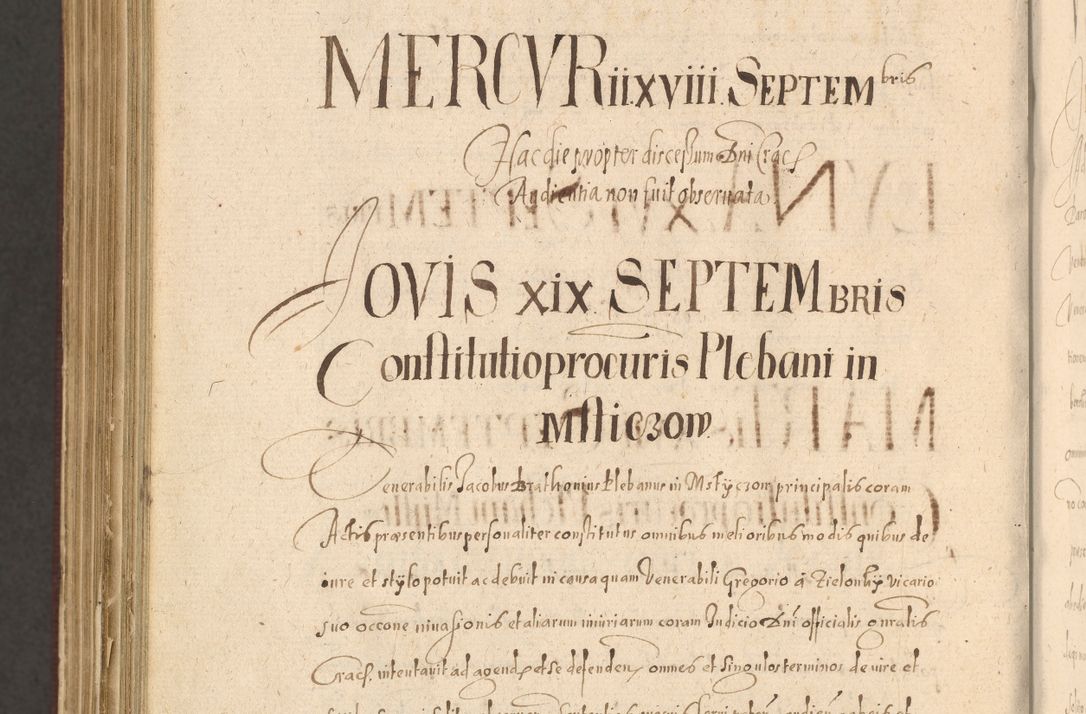 MERCVRii xviii. SEPTEMbris
Hac die propter discessum Dni Crac
Audientia non fuit obseruata
JOVIS xix SEPTEMBRIS
Constitutio procuris Plebani in
Msticzow
Venerabilis Jacobus Brathonius Plebanus in Mstÿczow principalis coram
Actis præsentibus personaliter constitutus omnibus melioribus modis quibus de
iure et stÿlo potuit ac debuit in causa quam Venerabili Gregorio a Zielonkÿ Vicario
suo occõne inuasionis et aliarum iniuriarum coram Judicio Dni officialis gnralis
Crac. intentauit ad agend et se defenden omnes et singulos terminos de iure et